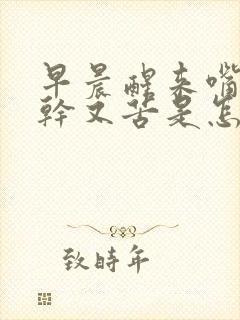 早晨醒来嘴
幹又苦是怎
致時年